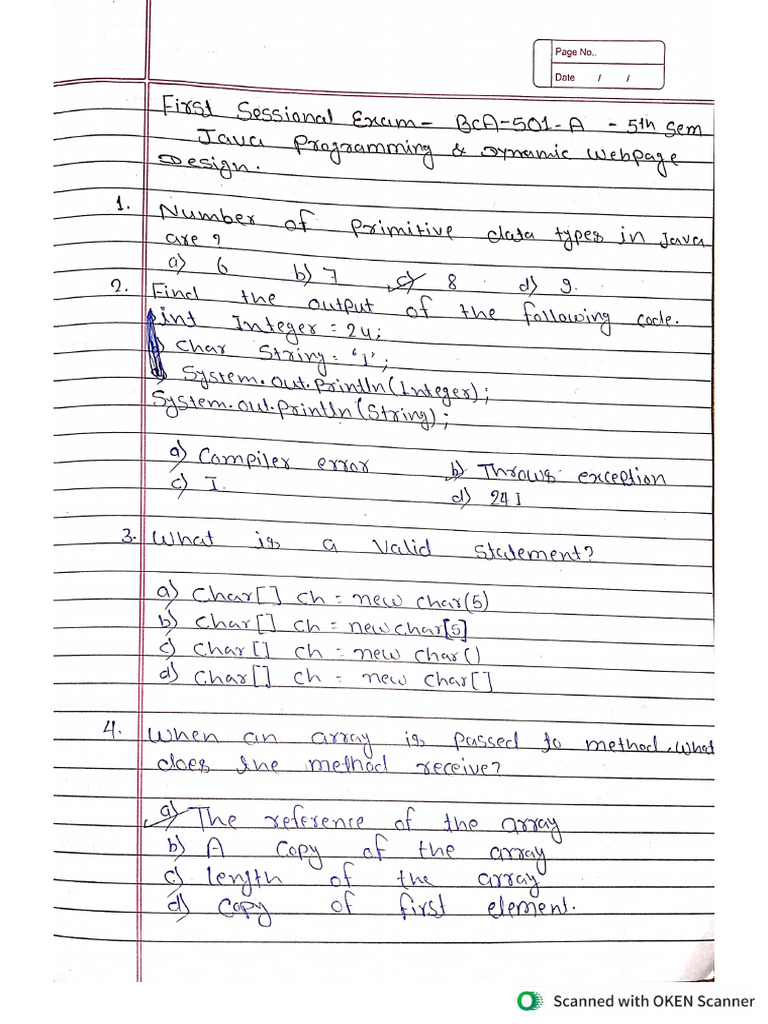 Page No..
Date / /
First Sessional Exam - BCA-501-A - 5th Sem
Java Programming & Dynamic Webpage
Design.
1. Number of primitive data types in Java
are ?
a) 6 b) 7 c) 8 d) 9.
2. Find the output of the following code.
int Integer = 24;
char String = 'I';
System.out.println(Integer);
System.out.println(String);
a) Compiler error b) Throws exception
c) I. d) 24 I
3. What is a valid statement?
a) Char[] ch = new char(5)
b) Char[] ch = new char[5]
c) Char[] ch = new char()
d) Char[] ch = new char[]
4. When an array is passed to method, what
does the method receive?
a) The reference of the array
b) A copy of the array
c) length of the array
d) Copy of first element.
Scanned with OKEN Scanner